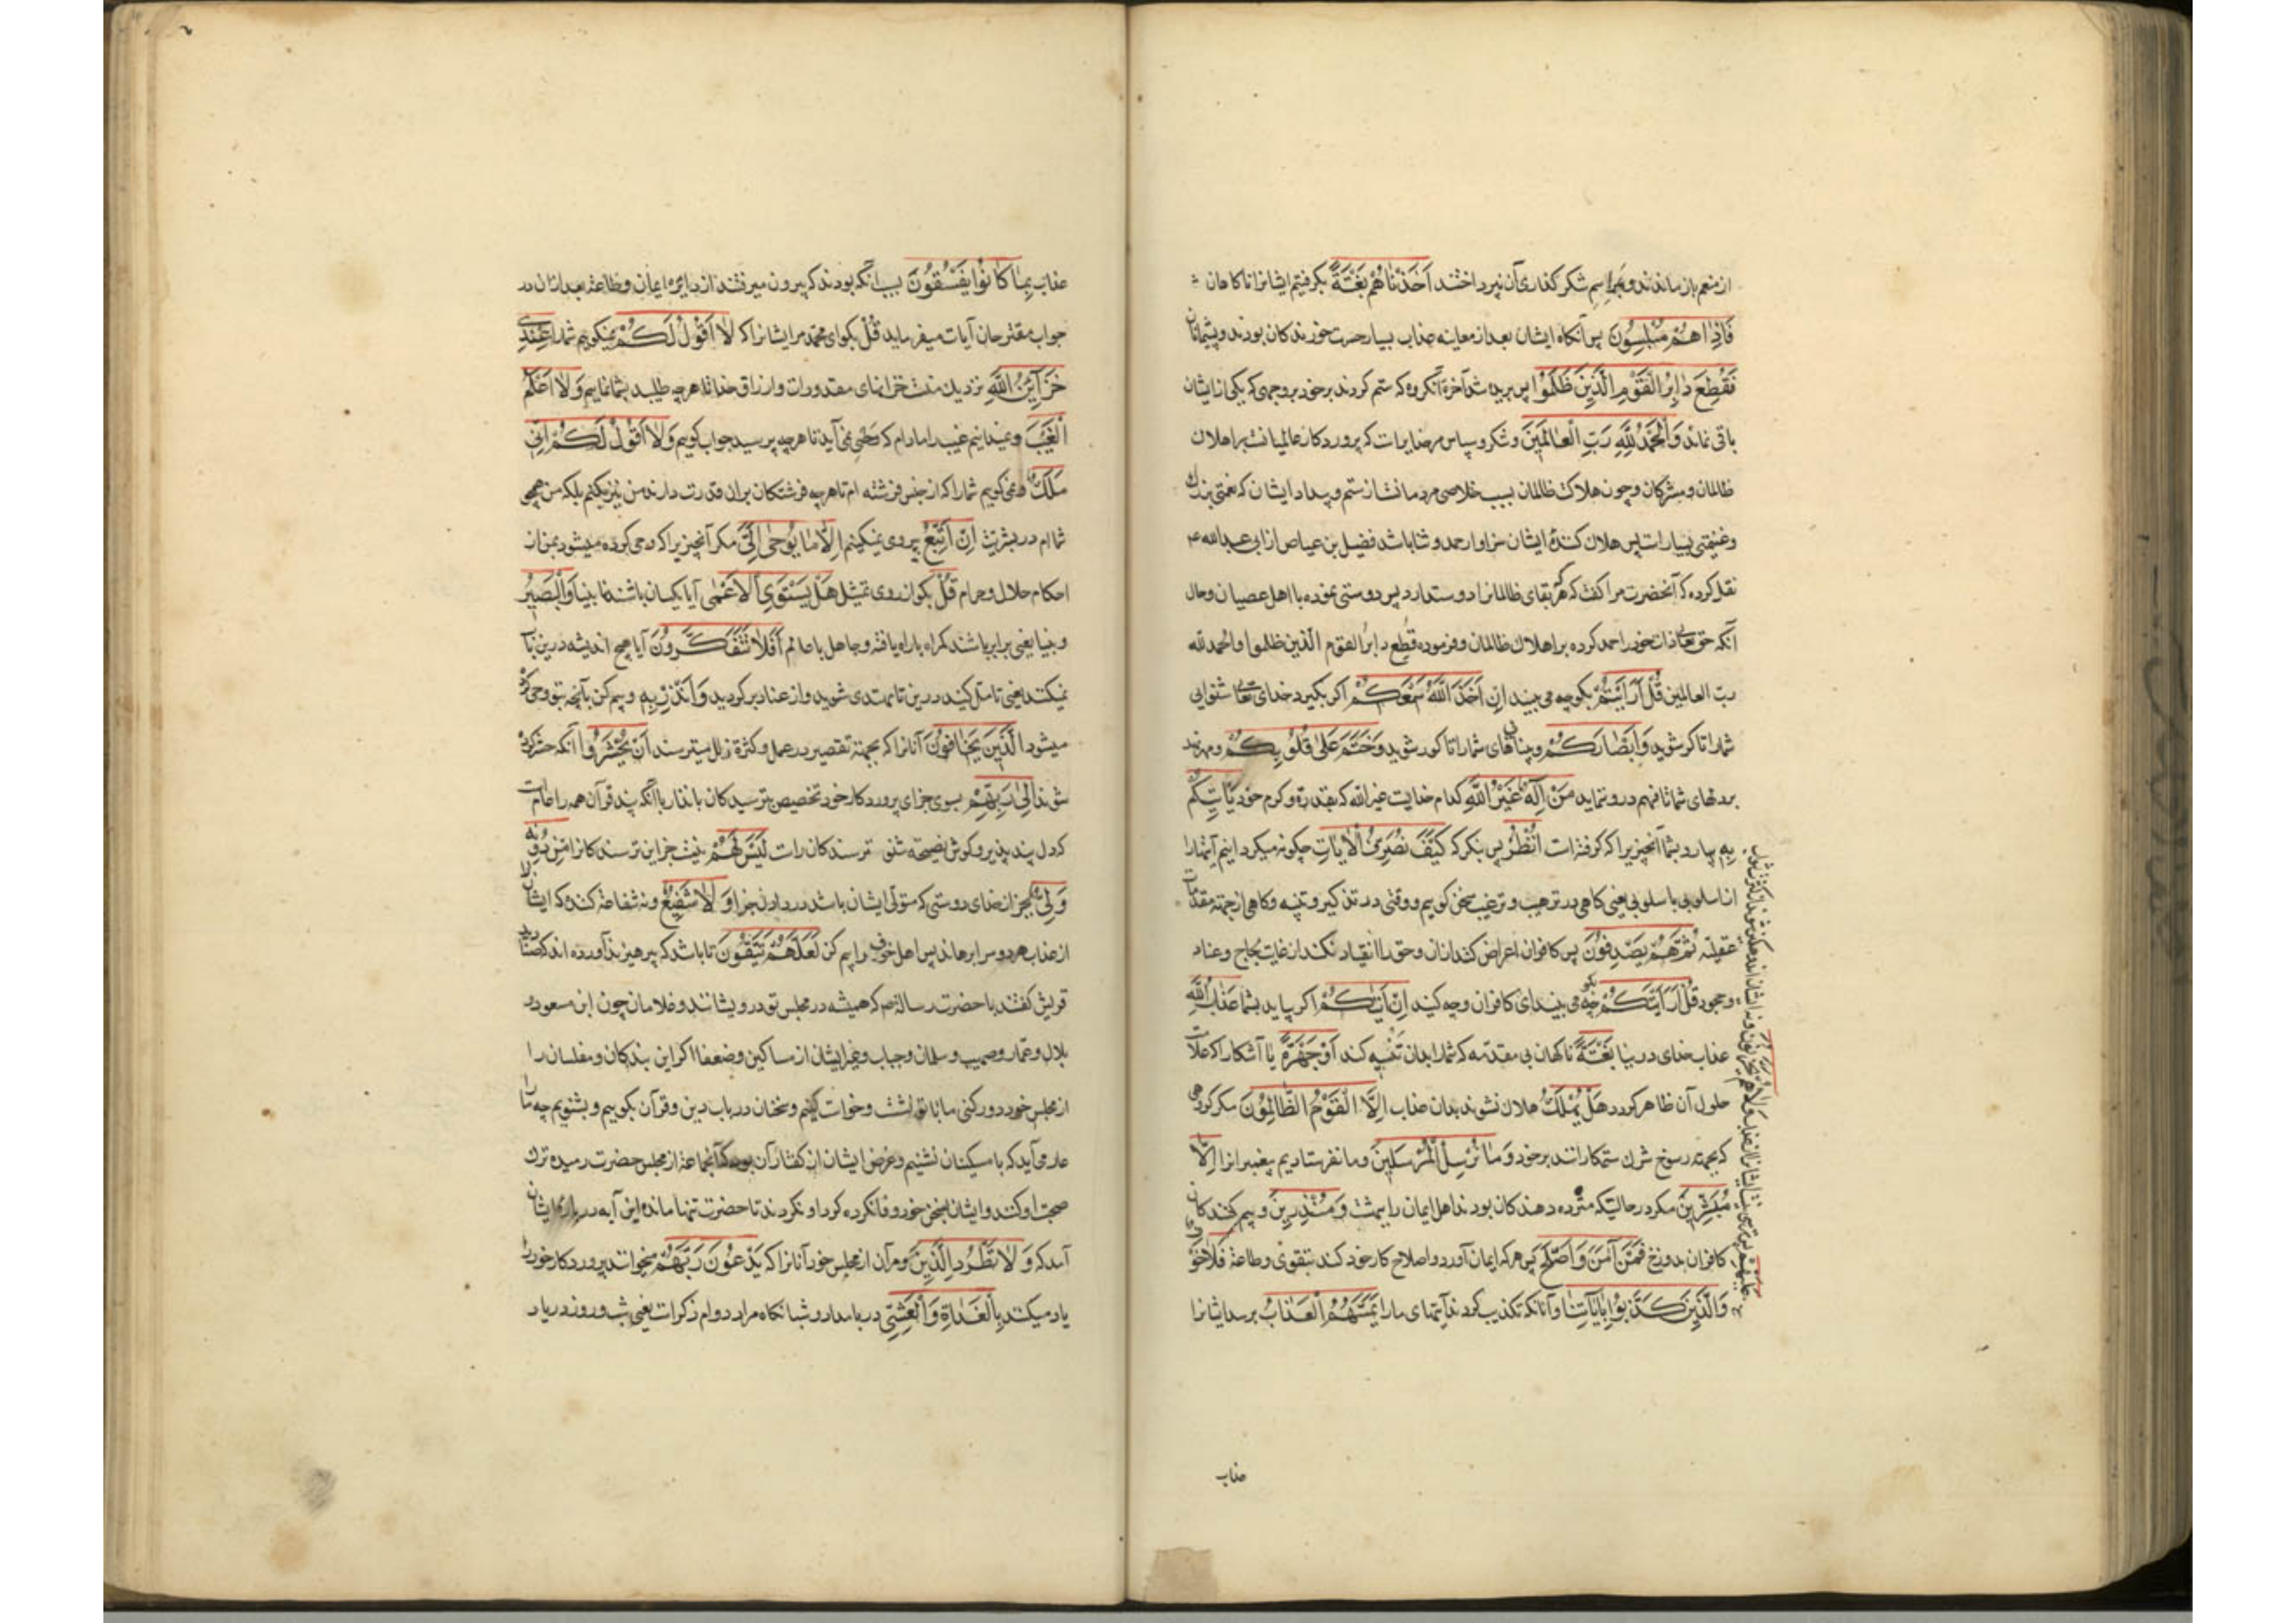 از منعم باز ماندند و بمراسم شکر گذاری آن نپرداختند اَخَذْنَاهُمْ بَغْتَةً بگرفتیم ایشانرا ناکاهان
فَاِذَا هُمْ مُبْلِسُونَ پس آنکاه ایشان بعد از معاینه عذاب بسیار حسرت خورندکان بودند و پشیمانان
فَقُطِعَ دَابِرُ الْقَوْمِ الَّذِينَ ظَلَمُوا پس بریده شد آخر آنگروه که ستم کردند برخود بروجهی که یکی از ایشان
باقی نماند وَالْحَمْدُ لِلَّهِ رَبِّ الْعَالَمِينَ و شکر و سپاس مر خدایراست که پروردکار عالمیانست بر اهلاک
ظالمان و مشرکان و چون هلاک ظالمان بسبب خلاصی مردمانست از ستم و بیداد ایشان که نعمتی بزرک
و غنیمتی بسیارست پس هلاک کنندهٔ ایشان سزاوار حمد و ثنا باشد فضیل بن عیاض از ابی عبدالله عم
نقل کرده که آنحضرت مرا کفت که هر که بقای ظالمانرا دوست دارد پس دوستی نموده با اهل عصیان و حال
آنکه حق تعالی ذات خود را حمد کرده بر اهلاک ظالمان و فرموده فقطع دابر القوم الّذین ظلموا والحمد لله
ربّ العالمین قُلْ اَرَاَيْتُمْ بکو چه می بینید اِنْ اَخَذَ اللَّهُ سَمْعَكُمْ اکر بگیرد خدای تعالی شنوایی
شما را تا کر شوید وَاَبْصَارَكُمْ و بیناییهای شما را تا کور شوید وَخَتَمَ عَلَى قُلُوبِكُمْ و مهر نهد
بر دلهای شما تا فهم درو نماند مَنْ اِلَهٌ غَيْرُ اللَّهِ کدام خداست غیر الله که بقدرة و کرم خود يَاْتِيكُمْ
بِهِ بیارد بشما آنچیزیرا که کرفته است اُنْظُرْ پس بنکر که كَيْفَ نُصَرِّفُ الْآيَاتِ چکونه میکردانیم آیتها را
از اسلوبی با سلوبی یعنی کاهی در ترهیب و ترغیب سخن کوییم و وقتی در تذکیر و تنبیه و کاهی از جهة مقدمات
عقلیّه ثُمَّ هُمْ يَصْدِفُونَ پس کافران اعراض کنند ازان و حق را انقیاد نکنند از غایت لجاج و عناد
و جحود قُلْ اَرَاَيْتَكُمْ بکو چه می بینید ای کافران و چه کنید اِنْ اَتَاكُمْ اکر بیاید بشما عَذَابُ اللَّهِ
عذاب خدای در دنیا بَغْتَةً ناکهان بی مقدّمه که شما را بدان تنبیه کند اَوْ جَهْرَةً یا آشکارا که علامت
حلول آن ظاهر کردد هَلْ يُهْلَكُ هلاک نشوند بدان عذاب اِلَّا الْقَوْمُ الظَّالِمُونَ مکر کروهی
که بجهة رسوخ شرک ستمکارانند برخود وَمَا نُرْسِلُ الْمُرْسَلِينَ و ما نفرستادیم پیغمبرانرا اِلَّا
مُبَشِّرِينَ مکر در حالتیکه مژده دهندکان بودند اهل ایمان را ببهشت وَمُنْذِرِينَ و بیم کنندکان
کافران بدوزخ فَمَنْ آمَنَ وَاَصْلَحَ پس هر که ایمان آورد و اصلاح کار خود کند بتقوی و طاعة فَلَا خَوْفٌ
عَلَيْهِمْ پس ترسی نیست ایشانرا از عذاب وَلَا هُمْ يَحْزَنُونَ و نه ایشان اندوهکین شوند
وَالَّذِينَ كَذَّبُوا بِآيَاتِنَا و آنانکه تکذیب کردند آیتهای ما را يَمَسُّهُمُ الْعَذَابُ برسد ایشانرا
عذاب
عذاب بِمَا كَانُوا يَفْسُقُونَ بسبب آنکه بودند که بیرون میرفتند از دایرهٔ ایمان و طاعة بعد ازان در
جواب مقترحان آیات میفرماید قُلْ بکو ای محمد مر ایشانرا که لَا اَقُولُ لَكُمْ نمیکویم شما را عِنْدِي
خَزَائِنُ اللَّهِ نزدیک منست خزانهای مقدورات و ارزاق خدا تا هر چه طلبید بشما نمایم وَلَا اَعْلَمُ
الْغَيْبَ و نمیدانم غیب را مادام که وحی نمی آید تا هر چه پرسید جواب کویم وَلَا اَقُولُ لَكُمْ اِنِّي
مَلَكٌ و نمی کویم شما را که از جنس فرشته ام تا هر چه فرشتکان بران قدرت دارند من نیز بکنم بلکه من همچو
شماام در بشریّت اِنْ اَتَّبِعُ پیروی نمیکنم اِلَّا مَا يُوحَى اِلَيَّ مکر آنچیزیرا که وحی کرده میشود بمن از
احکام حلال و حرام قُلْ بکو از روی تمثیل هَلْ يَسْتَوِي الْاَعْمَى آیا یکسان باشند نابینا وَالْبَصِيرُ
و بینا یعنی برابر باشند کمراه با راه یافته و جاهل با عالم اَفَلَا تَتَفَكَّرُونَ آیا هیچ اندیشه درین باب
نمیکنند یعنی تأمّل کنید درین تا مهتدی شوید و از عناد برکردید وَاَنْذِرْ بِهِ و بیم کن بآنچه بتو وحی کرده
میشود الَّذِينَ يَخَافُونَ آنانرا که بجهة تقصیر در عمل و کثرة زلل میترسند اَنْ يُحْشَرُوا آنکه حشر کرده
شوند اِلَى رَبِّهِمْ بسوی جزای پروردکار خود تخصیص ترسیدکان بانذار با آنکه پند قرآن همه را عامست
که دل پندپذیر و کوش نصیحة شنو ترسندکان راست لَيْسَ لَهُمْ نیست جز این ترسندکانرا مِنْ دُونِهِ
وَلِيٌّ بجز از خدای دوستی که متولّی ایشان باشد در دادن جزا وَلَا شَفِيعٌ و نه شفاعة کننده که ایشانرا
از عذاب هر دو سرا برهاند پس اهل خوف را بیم کن لَعَلَّهُمْ يَتَّقُونَ تا باشد که بپرهیزند آورده اند که صنادید
قریش کفتند با حضرت رسالة صم که همیشه در مجلس تو درویشانند و غلامان چون ابن مسعود و
بلال و عمّار و صهیب و سلمان و خباب و غیر ایشان از مساکین و ضعفا اکر این بندکان و مفلسان را
از مجلس خود دور کنی ما با تو نشست و خواست کنیم و سخنان در باب دین و قرآن بکوییم و بشنویم چه ما را
عار می آید که با مسکینان نشینیم و غرض ایشان از کفتار آن بود که آنجماعة از مجلس حضرت رمیده ترک
صحبت او کنند و ایشان بسخن خود وفا نکرده کرد او نکردند تا حضرت تنها مانده این آیه در باره ایشان
آمد که وَلَا تَطْرُدِ الَّذِينَ و مران از مجلس خود آنانرا که يَدْعُونَ رَبَّهُمْ میخوانند پروردکار خود را
یاد میکنند بِالْغَدَاةِ وَالْعَشِيِّ در بامداد و شبانکاه مراد دوام ذکرست یعنی شب و روز در یاد